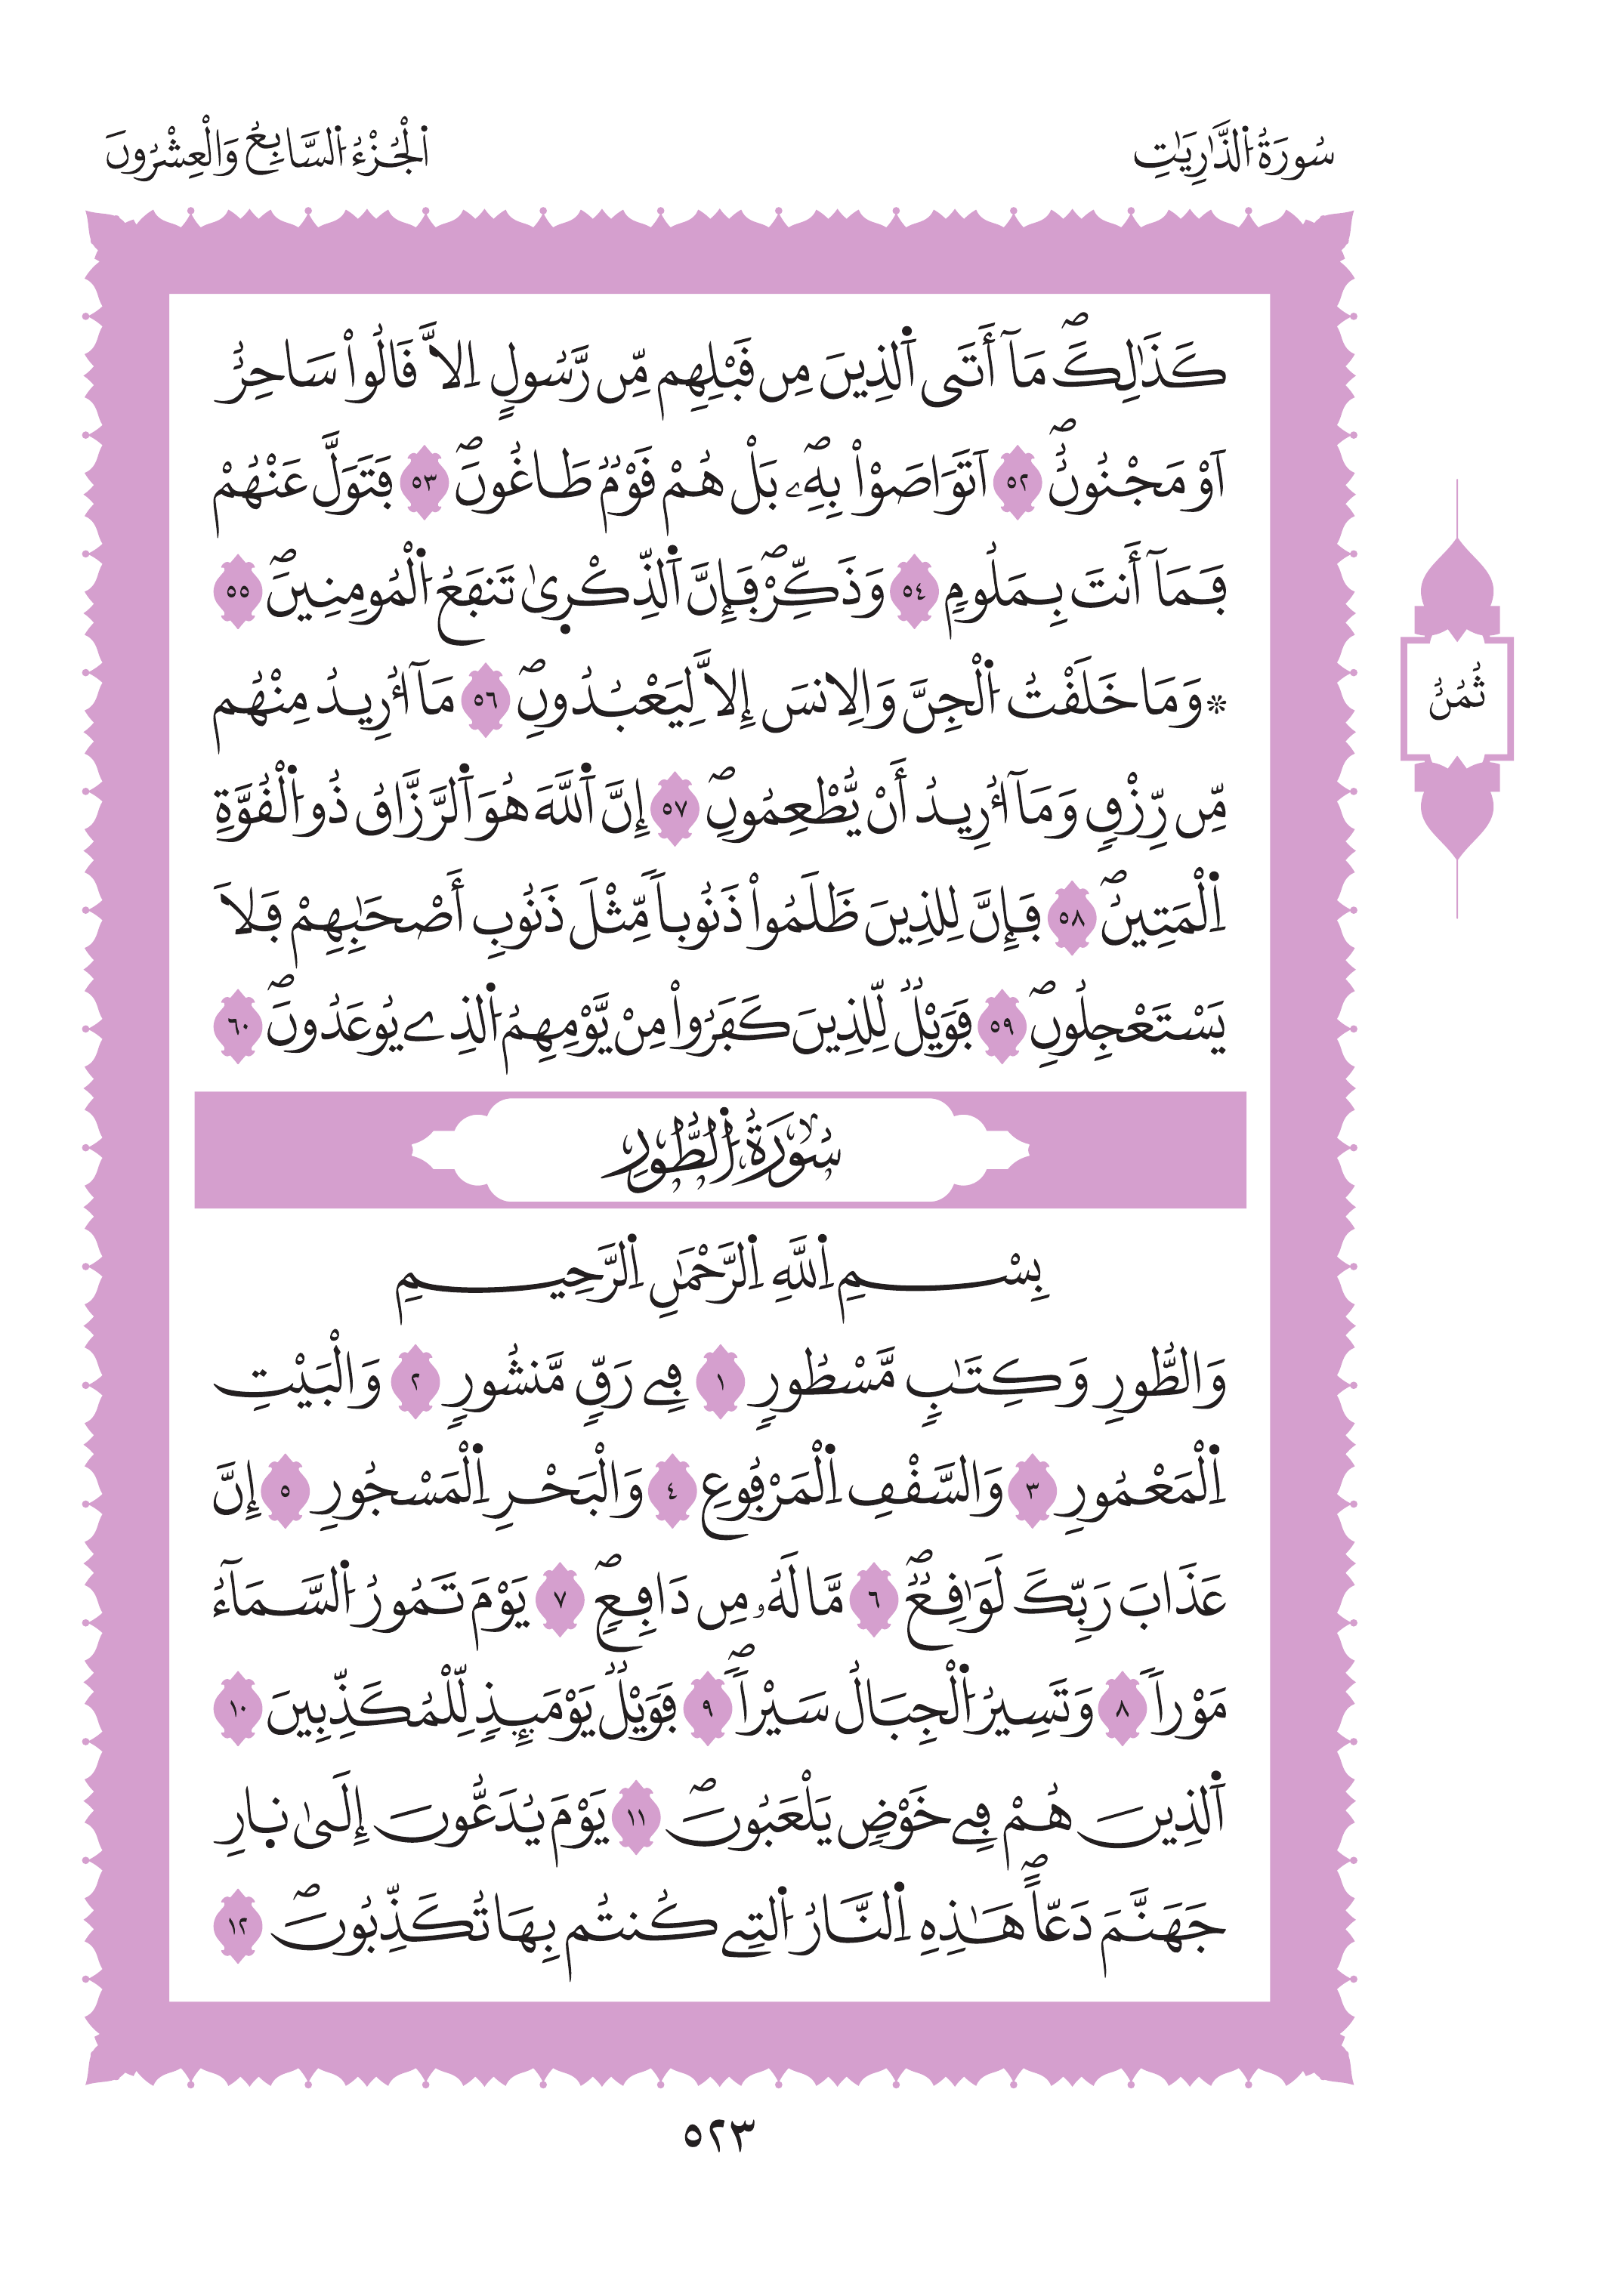 سُورَةُ الذَّارِيَٰتِ
اَلْجُزْءُ السَّابِعُ وَالْعِشْرُونَ
كَذَٰلِكَۖ مَآ أَتَى اَ۬لذِينَ مِن قَبْلِهِم مِّن رَّسُولٍ اِلَّا قَالُواْ سَاحِرٌ
اَوْ مَجْنُونٌۖ ٥٢ اَتَوَاصَوْاْ بِهِۦۖ بَلْ هُمْ قَوْمٞ طَاغُونَۖ ٥٣ فَتَوَلَّ عَنْهُمْ
فَمَآ أَنتَ بِمَلُومٖ ٥٤ وَذَكِّرْۖ فَإِنَّ اَ۬لذِّكْر۪يٰ تَنفَعُ اُ۬لْمُومِنِينَۖ ٥٥
۞وَمَا خَلَقْتُ اُ۬لْجِنَّ وَالِانسَ إِلَّا لِيَعْبُدُونِۖ ٥٦ مَآ أُرِيدُ مِنْهُم
مِّن رِّزْقٖ وَمَآ أُرِيدُ أَنْ يُّطْعِمُونِۖ ٥٧ إِنَّ اَ۬للَّهَ هُوَ اَ۬لرَّزَّاقُ ذُو اُ۬لْقُوَّةِ
اِ۬لْمَتِينُۖ ٥٨ فَإِنَّ لِلذِينَ ظَلَمُواْ ذَنُوباٗ مِّثْلَ ذَنُوبِ أَصْحَٰبِهِمْ فَلَا
يَسْتَعْجِلُونِۖ ٥٩ فَوَيْلٞ لِّلذِينَ كَفَرُواْ مِنْ يَّوْمِهِمُ اُ۬لذِے يُوعَدُونَۖ ٦٠
سُورَةُ اُ۬لطُّورِ
بِسْمِ اِ۬للَّهِ اِ۬لرَّحْمَٰنِ اِ۬لرَّحِيمِ
وَالطُّورِ وَكِتَٰبٖ مَّسْطُورٖ ١ فِے رَقّٖ مَّنشُورٖ ٢ وَالْبَيْتِ
اِ۬لْمَعْمُورِ ٣ وَالسَّقْفِ اِ۬لْمَرْفُوعِ ٤ وَالْبَحْرِ اِ۬لْمَسْجُورِ ٥ إِنَّ
عَذَابَ رَبِّكَ لَوَٰقِعٞۖ ٦ مَّا لَهُۥ مِن دَافِعٖۖ ٧ يَوْمَ تَمُورُ اُ۬لسَّمَآءُ
مَوْراٗ ٨ وَتَسِيرُ اُ۬لْجِبَالُ سَيْراٗۖ ٩ فَوَيْلٞ يَوْمَئِذٖ لِّلْمُكَذِّبِينَ ١٠
اَ۬لذِينَ هُمْ فِے خَوْضٖ يَلْعَبُونَۖ ١١ يَوْمَ يُدَعُّونَ إِلَىٰ ن۪ارِ
جَهَنَّمَ دَعّاًۖ هَٰذِهِ اِ۬لنَّارُ اُ۬لتِے كُنتُم بِهَا تُكَذِّبُونَۖ ١٢
ثُمُنٌ
٥٢٣